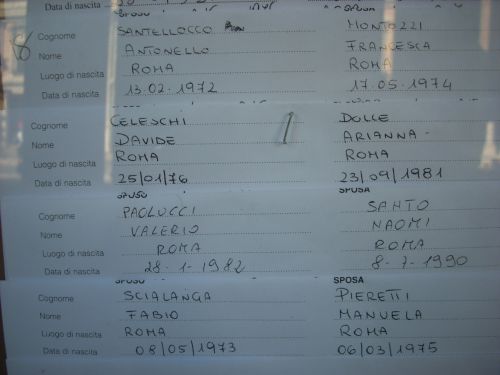 Data di nascita
8
SPOSO SPOSA
Cognome SANTELLOCCO MONTOZZI
Nome ANTONELLO FRANCESCA
Luogo di nascita ROMA ROMA
Data di nascita 13.02.1972 17.05.1974
Cognome CELESCHI DOLCE
Nome DAVIDE ARIANNA
Luogo di nascita ROMA ROMA
Data di nascita 25/01/76 23/09/1981
SPOSO SPOSA
Cognome PAOLUCCI SANTO
Nome VALERIO NAOMI
Luogo di nascita ROMA ROMA
Data di nascita 28-1-1982 8-7-1990
SPOSO SPOSA
Cognome SCIALANGA PIERETTI
Nome FABIO MANUELA
Luogo di nascita ROMA ROMA
Data di nascita 08/05/1973 06/03/1975